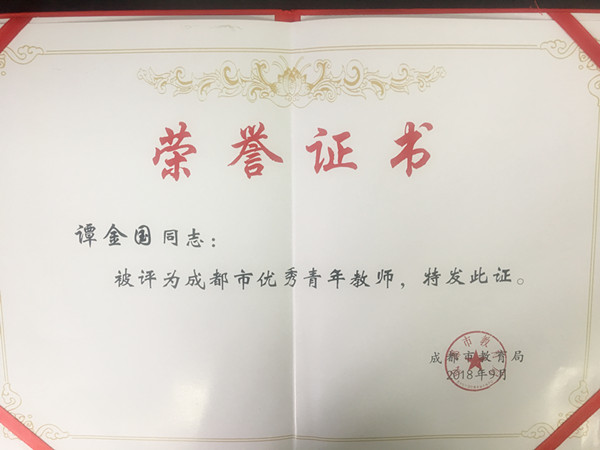 荣誉证书
谭金国同志：
被评为成都市优秀青年教师，特发此证。
成都市教育局
2018年9月